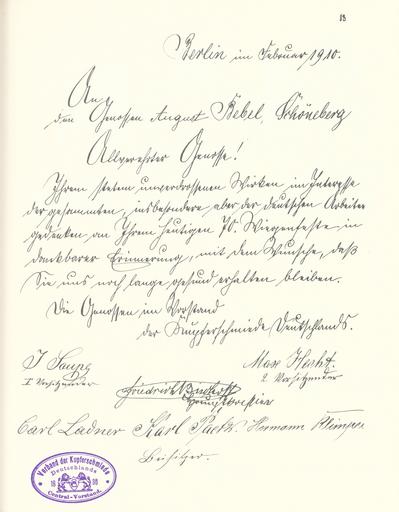 13.
Berlin im Februar 1910.
An
den Genossen August Bebel, Schöneberg
Allverehrter Genosse!
Ihrem stetem unverdrossenen Wirken im Interesse
der gesammten, insbesondere aber der deutschen Arbeiter
gedenken an Ihrem heutigen 70. Wiegenfeste in
dankbarer Erinnerung, mit dem Wunsche, daß
Sie uns noch lange gesund erhalten bleiben.
Die Genossen im Vorstand
der Kupferschmiede Deutschlands.
J. Saupe
I Vorsitzender
Max Hecht.
2. Vorsitzender
Friedrich
Hauptkassier
Carl Ladner Karl Hermann
Beisitzer.
Verband der Kupferschmiede
Deutschlands
18 90
Central-Vorstand.